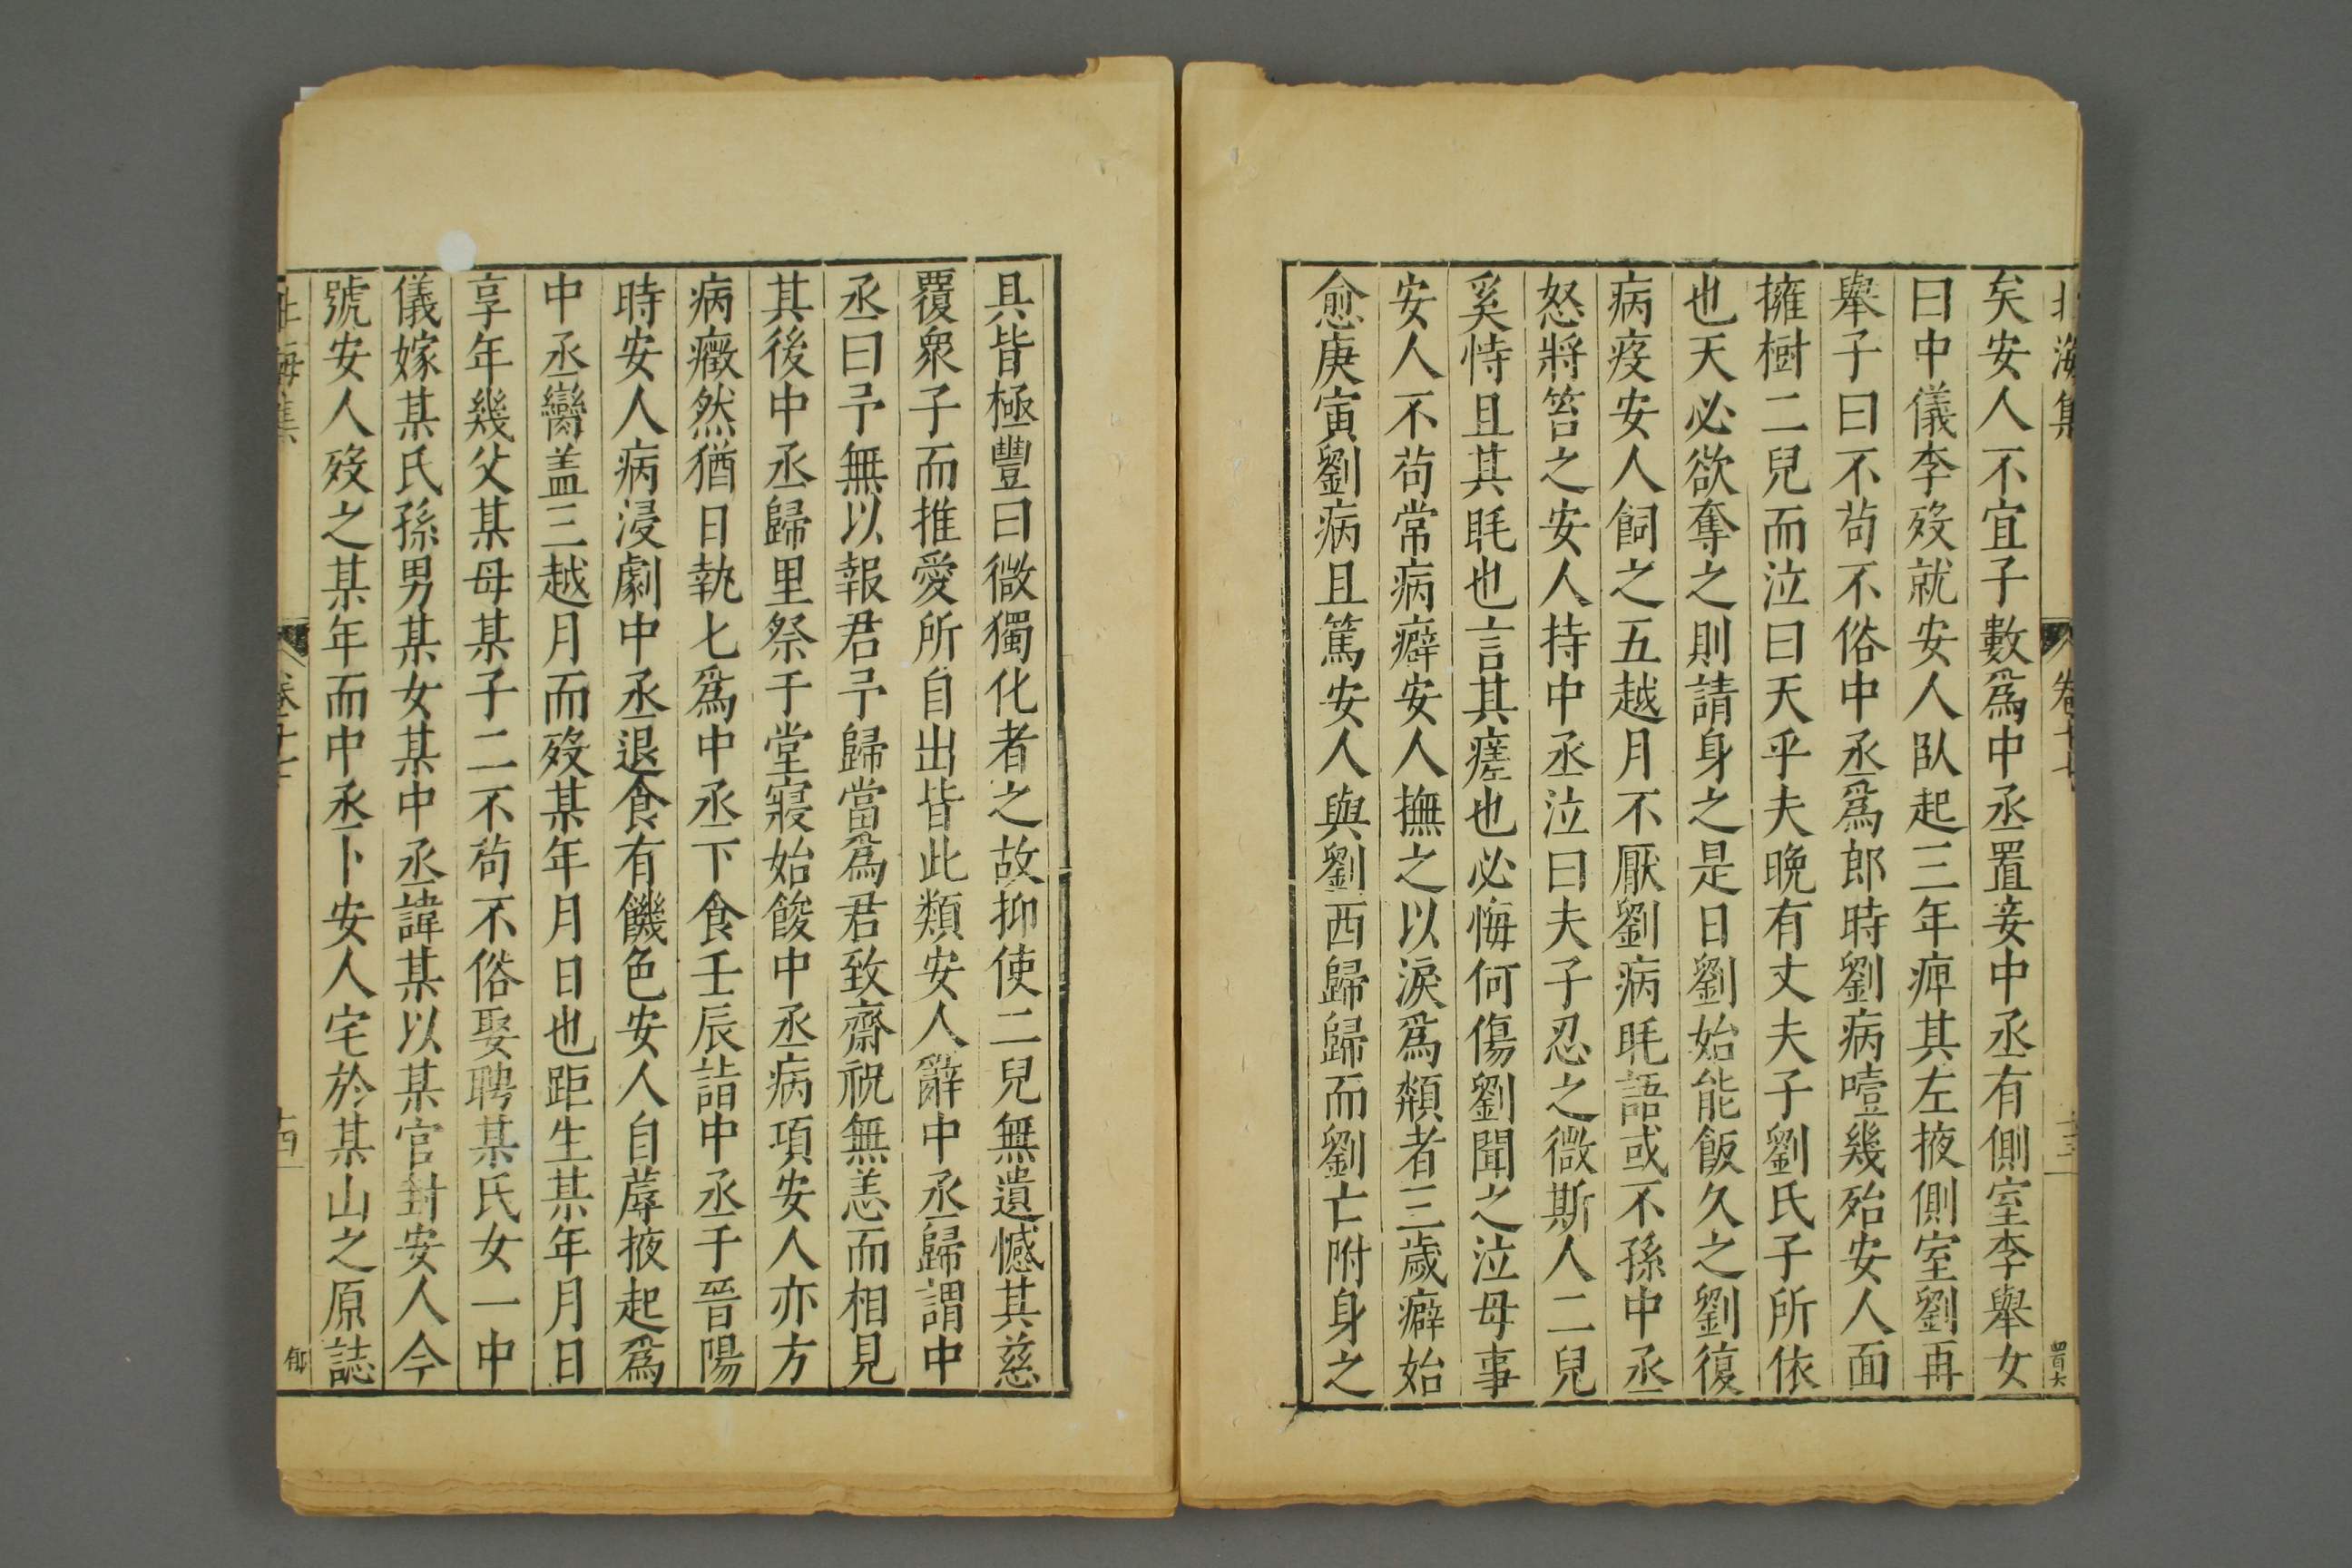 北海集 卷十七 十三 四百六
矣安人不宜子數爲中丞置妾中丞有側室李舉女
曰中儀李歿就安人臥起三年痺其左掖側室劉再
舉子曰不茍不俗中丞爲郎時劉病噎幾殆安人面
擁樹二兒而泣曰天乎夫晚有丈夫子劉氏子所依
也天必欲奪之則請身之是日劉始能飯久之劉復
病疫安人飼之五越月不厭劉病眊語或不孫中丞
怒將笞之安人持中丞泣曰夫子忍之微斯人二兒
奚恃且其眊也言其瘥也必悔何傷劉聞之泣母事
安人不茍常病癖安人撫之以淚爲頮者三歲癖始
愈庚寅劉病且篤安人與劉西歸歸而劉亡附身之
具皆極豐曰微獨化者之故抑使二兒無遺憾其慈
覆衆子而推愛所自出皆此類安人辭中丞歸謂中
丞曰予無以報君予歸當爲君致齋祝無恙而相見
其後中丞歸里祭于堂寢始餕中丞病項安人亦方
病癥然猶日執匕爲中丞下食壬辰詣中丞于晉陽
時安人病浸劇中丞退食有饑色安人自蓐掖起爲
中丞臠盖三越月而歿某年月日也距生某年月日
享年幾父某母某子二不茍不俗娶聘某氏女一中
儀嫁某氏孫男某女某中丞諱某以某官封安人今
號安人歿之某年而中丞卜安人宅於某山之原誌
北海集 卷十七 十四